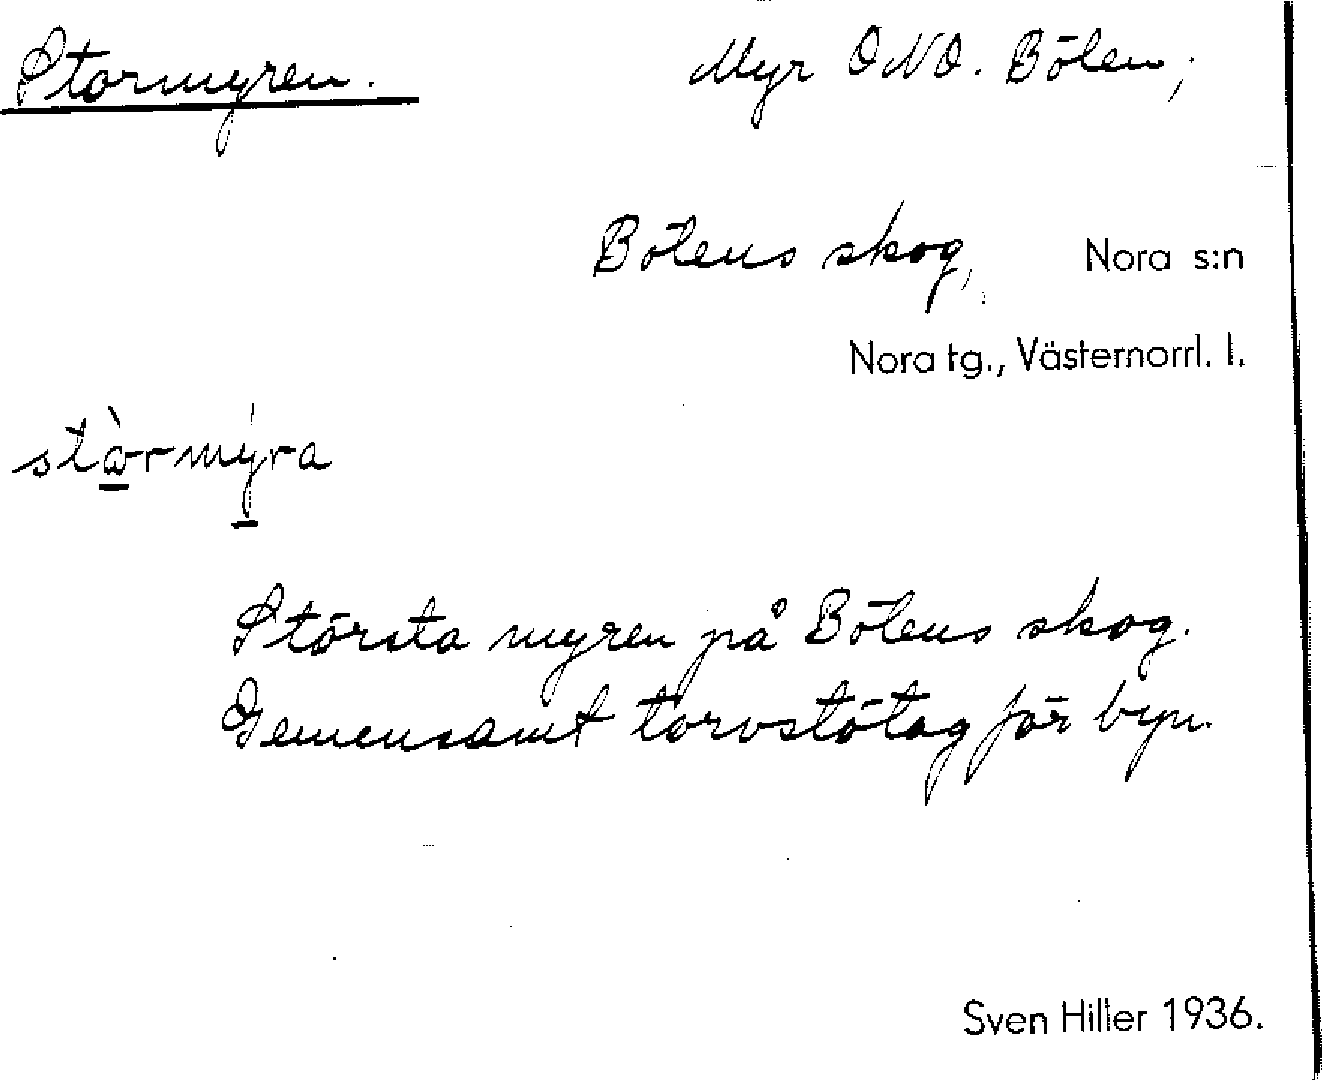 Stormyren.
Myr ONO. Bölen,
Bölens skog, Nora s:n
Nora tg., Västernorrl. l.
stòrmýra
Största myren på Bölens skog.
Gemensamt torvströtag för byn.
Sven Hiller 1936.